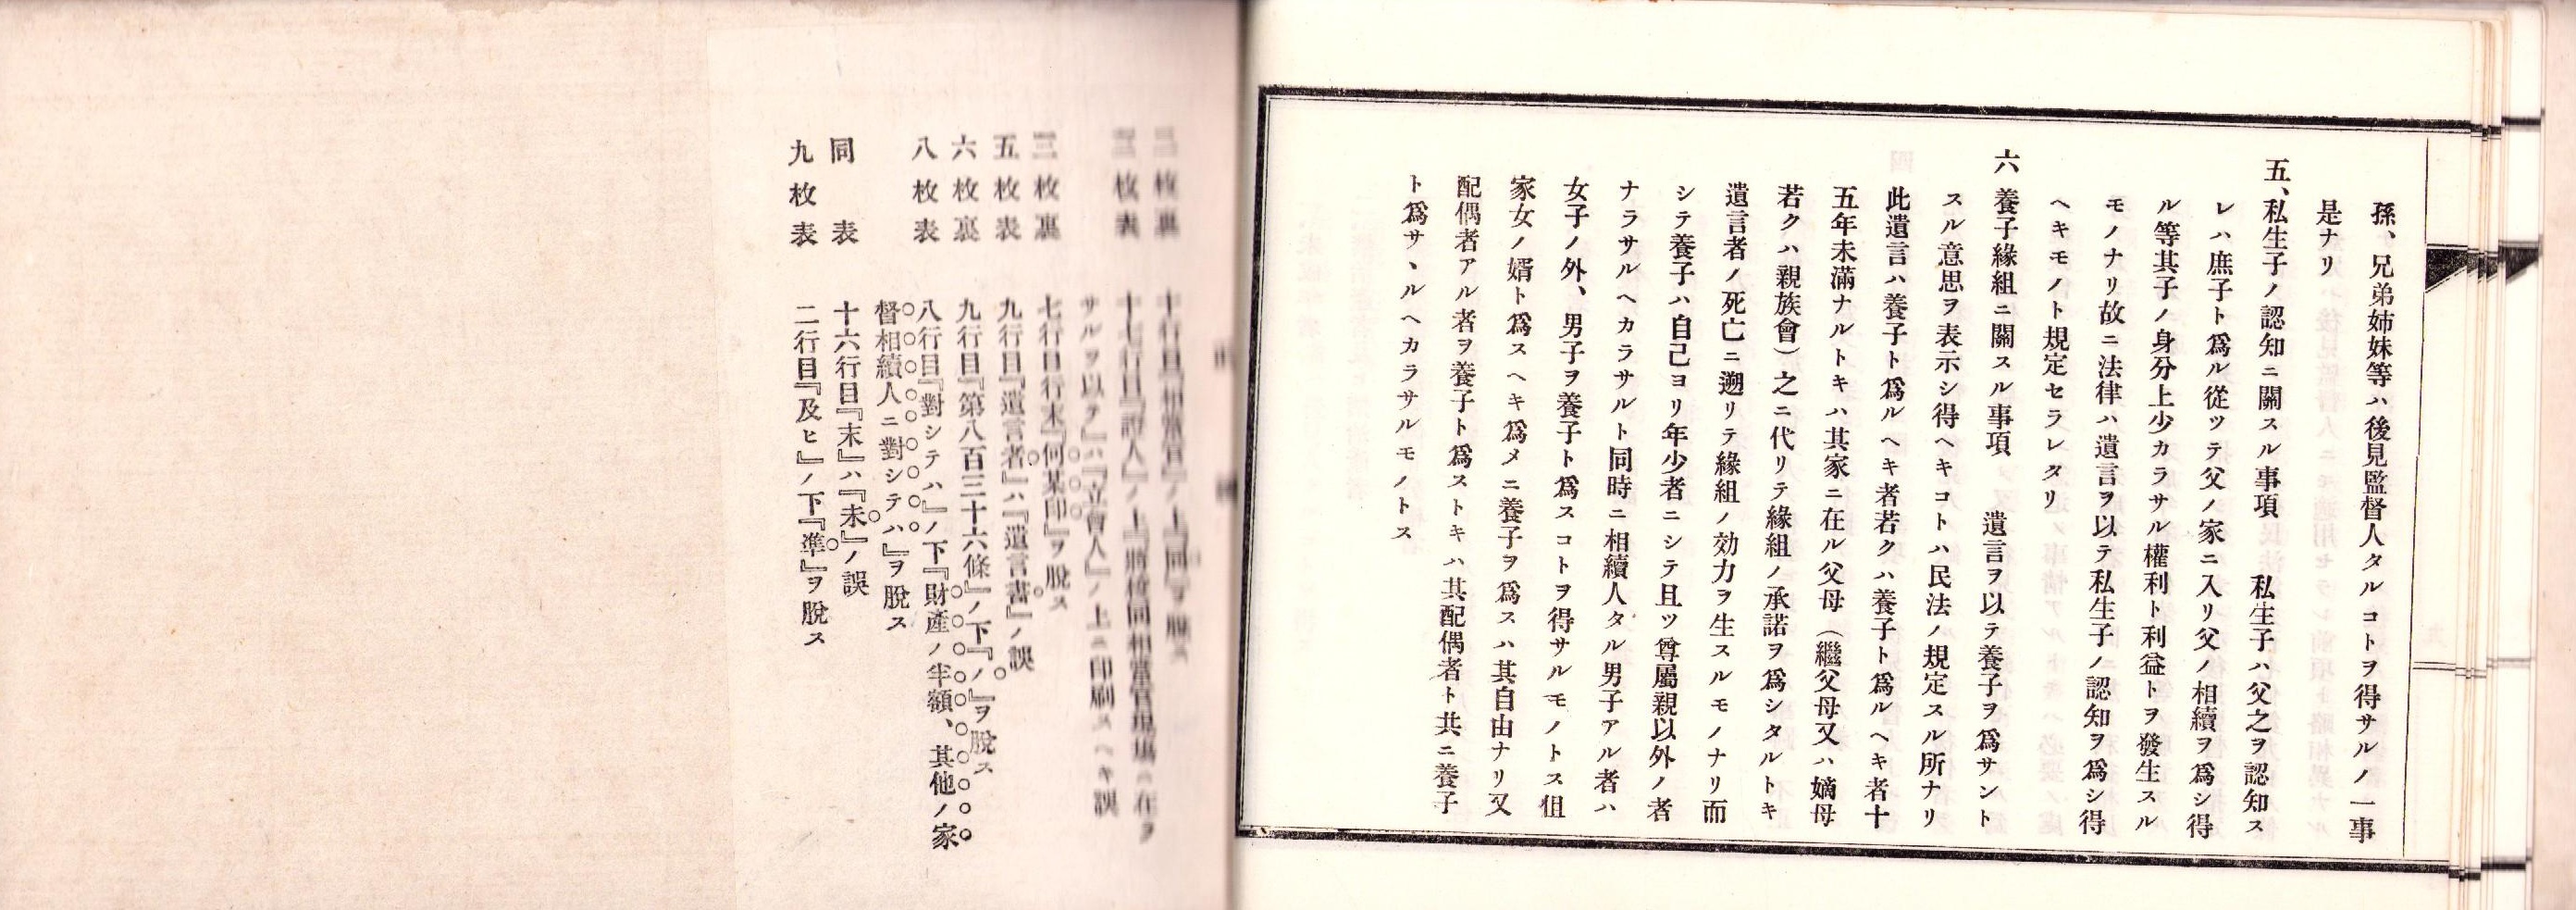 孫、兄弟姉妹等ハ後見監督人タルコトヲ得サルノ一事
是ナリ
五、私生子ノ認知ニ關スル事項　私生子ハ父之ヲ認知ス
レハ庶子ト爲ル從ツテ父ノ家ニ入リ父ノ相續ヲ爲シ得
ル等其子ノ身分上少カラサル權利ト利益トヲ發生スル
モノナリ故ニ法律ハ遺言ヲ以テ私生子ノ認知ヲ爲シ得
ヘキモノト規定セラレタリ
六　養子緣組ニ關スル事項　遺言ヲ以テ養子ヲ爲サント
スル意思ヲ表示シ得ヘキコトハ民法ノ規定スル所ナリ
此遺言ハ養子ト爲ルヘキ者若クハ養子ト爲ルヘキ者十
五年未滿ナルトキハ其家ニ在ル父母（繼父母又ハ嫡母
若クハ親族會）之ニ代リテ緣組ノ承諾ヲ爲シタルトキ
遺言者ノ死亡ニ遡リテ緣組ノ効力ヲ生スルモノナリ而
シテ養子ハ自己ヨリ年少者ニシテ且ツ尊屬親以外ノ者
ナラサルヘカラサルト同時ニ相續人タル男子アル者ハ
女子ノ外、男子ヲ養子ト爲スコトヲ得サルモノトス但
家女ノ婿ト爲スヘキ爲メニ養子ヲ爲スハ其自由ナリ又
配偶者アル者ヲ養子ト爲ストキハ其配偶者ト共ニ養子
ト爲サヽルヘカラサルモノトス
枚裏　十行目『相當官』ノ上『同』ヲ脫ス
枚表　十七行目『證人』ノ上『將校同相當官現場ニ在ヲ
サルヲ以テ』ハ『立會人』ノ上ニ印刷スヘキ誤
三枚裏　七行目行末『何某印』ヲ脫ス
五枚表　九行目『遺言者』ハ『遺言書』ノ誤
六枚裏　九行目『第八百三十六條』ノ下『ノ』ヲ脫ス
八枚表　八行目『對シテハ』ノ下『財產ノ半額、其他ノ家
督相續人ニ對シテハ』ヲ脫ス
同　表　十六行目『末』ハ『未』ノ誤
九枚表　二行目『及ヒ』ノ下『準』ヲ脫ス